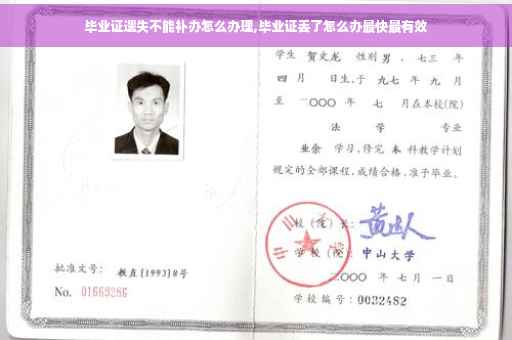 毕业证遗失不能补办怎么办理,毕业证丢了怎么办最快最有效
学生 贺文龙 性别 男 、七三 年
四 月 日生,于 九七 年 九 月
至 二〇〇〇 年 七 月在本校(院)
法 学 专业
业余 学习,修完 本 科教学计划
规定的全部课程,成绩合格,准予毕业。
校(院)长:
学 校(院): 中山大学
二〇〇〇 年 七 月 一 日
批准文号: 教直[1993]8号
No. 01669286
学校编号: 0032482